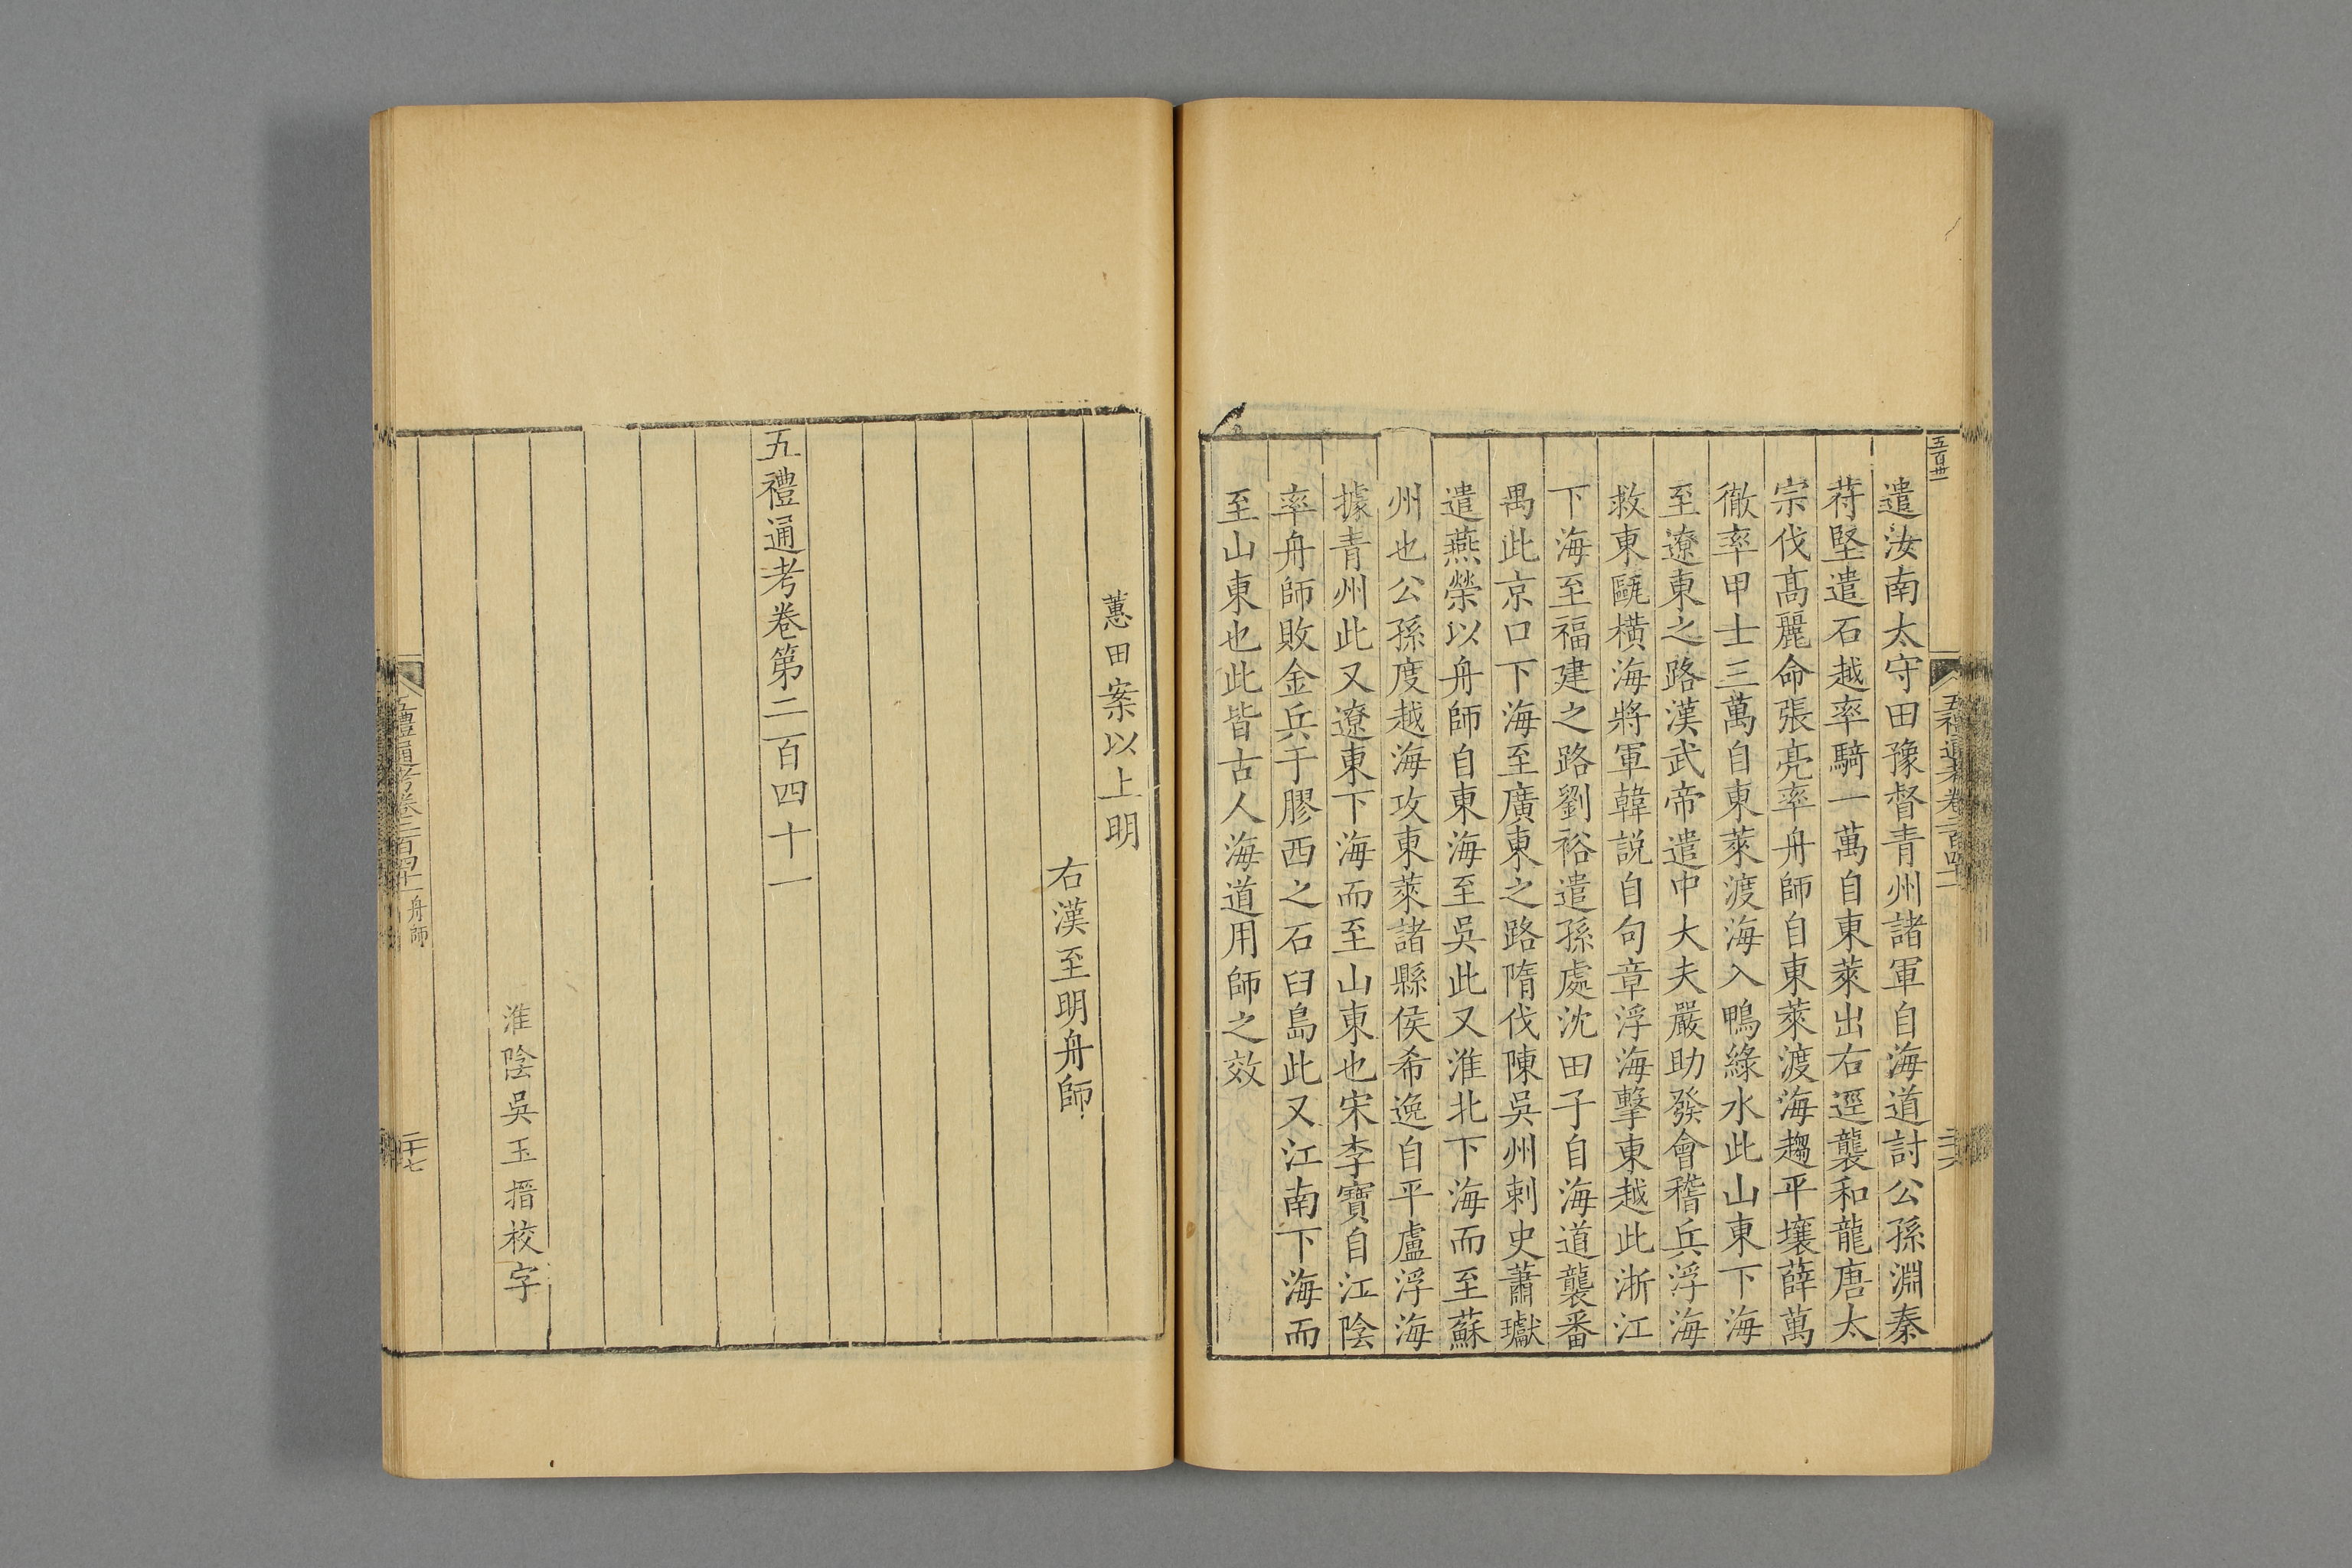 五百卌一
遣汝南太守田豫督青州諸軍自海道討公孫淵秦
苻堅遣石越率騎一萬自東萊出右逕襲和龍唐太
宗伐髙麗命張亮率舟師自東萊渡海趨平壤薛萬
徹率甲士三萬自東萊渡海入鴨綠水此山東下海
至遼東之路漢武帝遣中大夫嚴助發會稽兵浮海
救東甌橫海將軍韓説自句章浮海擊東越此浙江
下海至福建之路劉裕遣孫處沈田子自海道襲番
禺此京口下海至廣東之路隋伐陳吳州刺史蕭瓛
遣燕榮以舟師自東海至吳此又淮北下海而至蘇
州也公孫度越海攻東萊諸縣侯希逸自平盧浮海
據青州此又遼東下海而至山東也宋李寶自江陰
率舟師敗金兵于膠西之石臼島此又江南下海而
至山東也此皆古人海道用師之效
五禮通考卷二百四十一
二十六
蕙田案以上明
右漢至明舟師
五禮通考卷第二百四十一
淮陰吳玉搢校字
五禮通考卷二百四十一 舟師
二十七